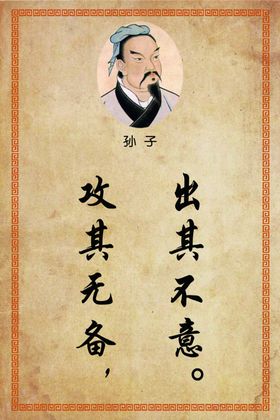 孙子
攻其无备，
出其不意。